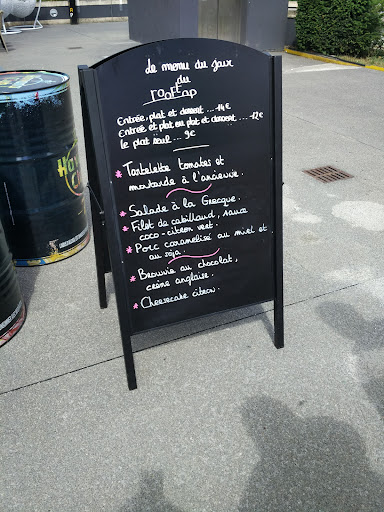 Le menu du jour
du
rooftop
Entrée, plat et dessert ... 14€
Entrée et plat ou plat et dessert ... 12€
le plat seul ... 9€
* Tartelette tomates et
moutarde à l'ancienne.
* Salade à la Grecque.
* Filet de cabillaud, sauce
coco-citron vert.
* Porc caramélisé au miel et
au soja.
* Brownie au chocolat,
crème anglaise.
* Cheesecake citron.